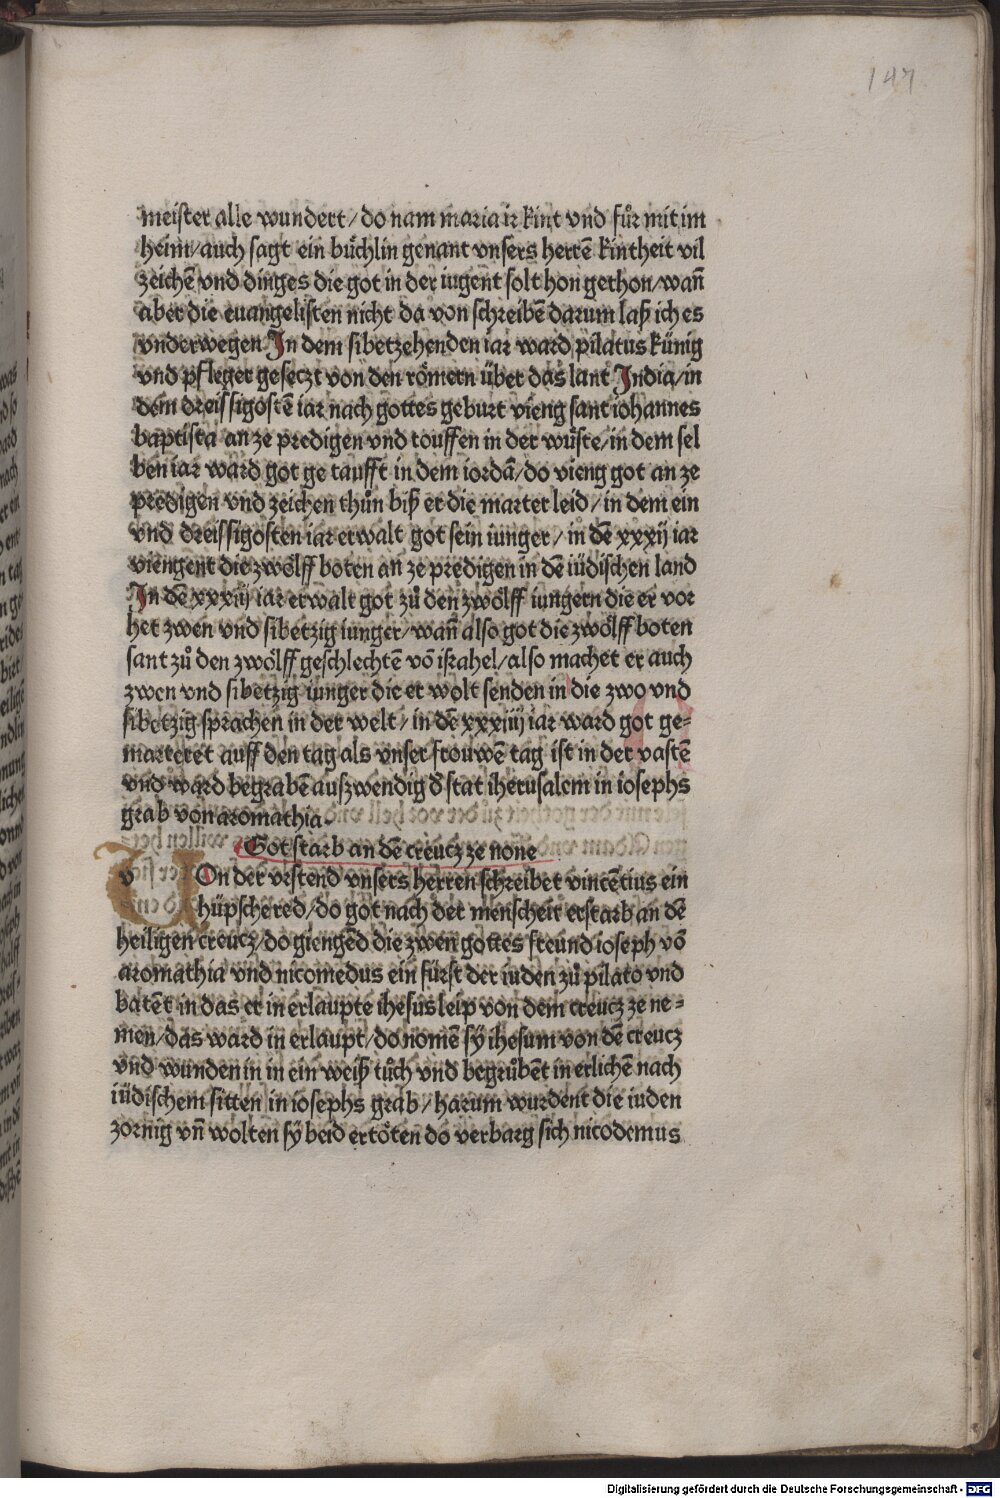 147
meister alle wundert/do nam maria ir kint vnd fůr mit im
heim/auch sagt ein büchlin genant vnsers herrē kintheit vil
zeichē vnd dinges die got in der iugent solt hon gethon/wañ
aber die euangelisten nicht da von schreibē darum laß ich es
vnderwegen In dem sibetzehenden iar ward pilatus künig
vnd pfleger geseczt von den römern über das lant India/in
dem dreissigostē iar nach gottes geburt vieng sant iohannes
baptista an ze predigen vnd touffen in der wüste/in dem sel
ben iar ward got ge taufft in dem iordā/do vieng got an ze
predigen vnd zeichen thůn biß er die marter leid/in dem ein
vnd dreissigosten iar erwalt got sein iunger/in dē xxxij iar
viengent die zwölff boten an ze predigen in dē iüdischen land
In dē xxxiij iar erwalt got zů den zwölff iungern die er vor
het zwen vnd sibetzig iunger/wañ also got die zwölff boten
sant zů den zwölff geschlechtē vō israhel/also machet er auch
zwen vnd sibetzig iunger die er wolt senden in die zwo vnd
sibetzig sprachen in der welt/in dē xxxiiij iar ward got ge=
marteret auff den tag als vnser frouwē tag ist in der vastē
vnd ward begrabē auszwendig d̄ stat iherusalem in iosephs
grab von aromathia.
Got starb an dē creucz ze none
v VOn der vrstend vnsers herren schreibet vincētius ein
hüpsche red/do got nach der menscheit erstarb an dē
heiligen creucz/do giengēd die zwen gottes freund ioseph vō
aromathia vnd nicomedus ein fürst der iuden zů pilato vnd
batēt in das er in erlaupte ihesus leip von dem creucz ze ne=
men/das ward in erlaupt/do nomē sy ihesum von dē creucz
vnd wunden in in ein weiß tůch vnd begrůbēt in erlichē nach
iüdischem sitten in iosephs grab/harum wurdent die iuden
zornig vñ wolten sy beid ertöten do verbarg sich nicodemus
Digitalisierung gefördert durch die Deutsche Forschungsgemeinschaft - DFG